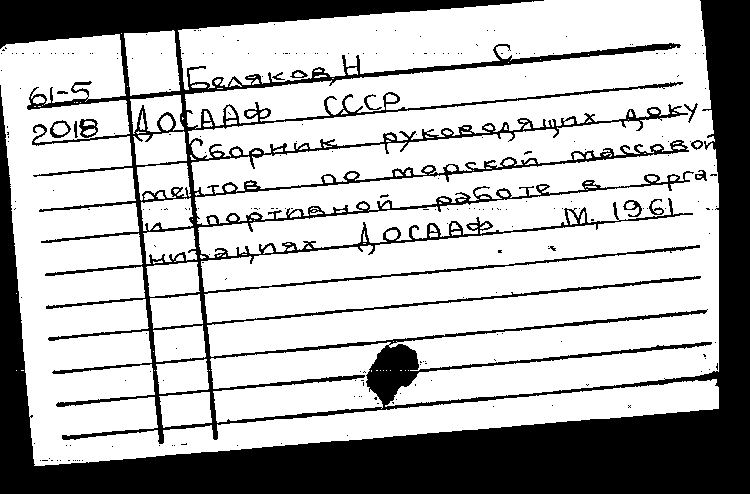 61-5 Беляков, Н С
2018 ДОСААФ СССР.
Сборник руководящих доку-
ментов по морской массовой
и спортивной работе в орга-
низациях ДОСААФ. М., 1961